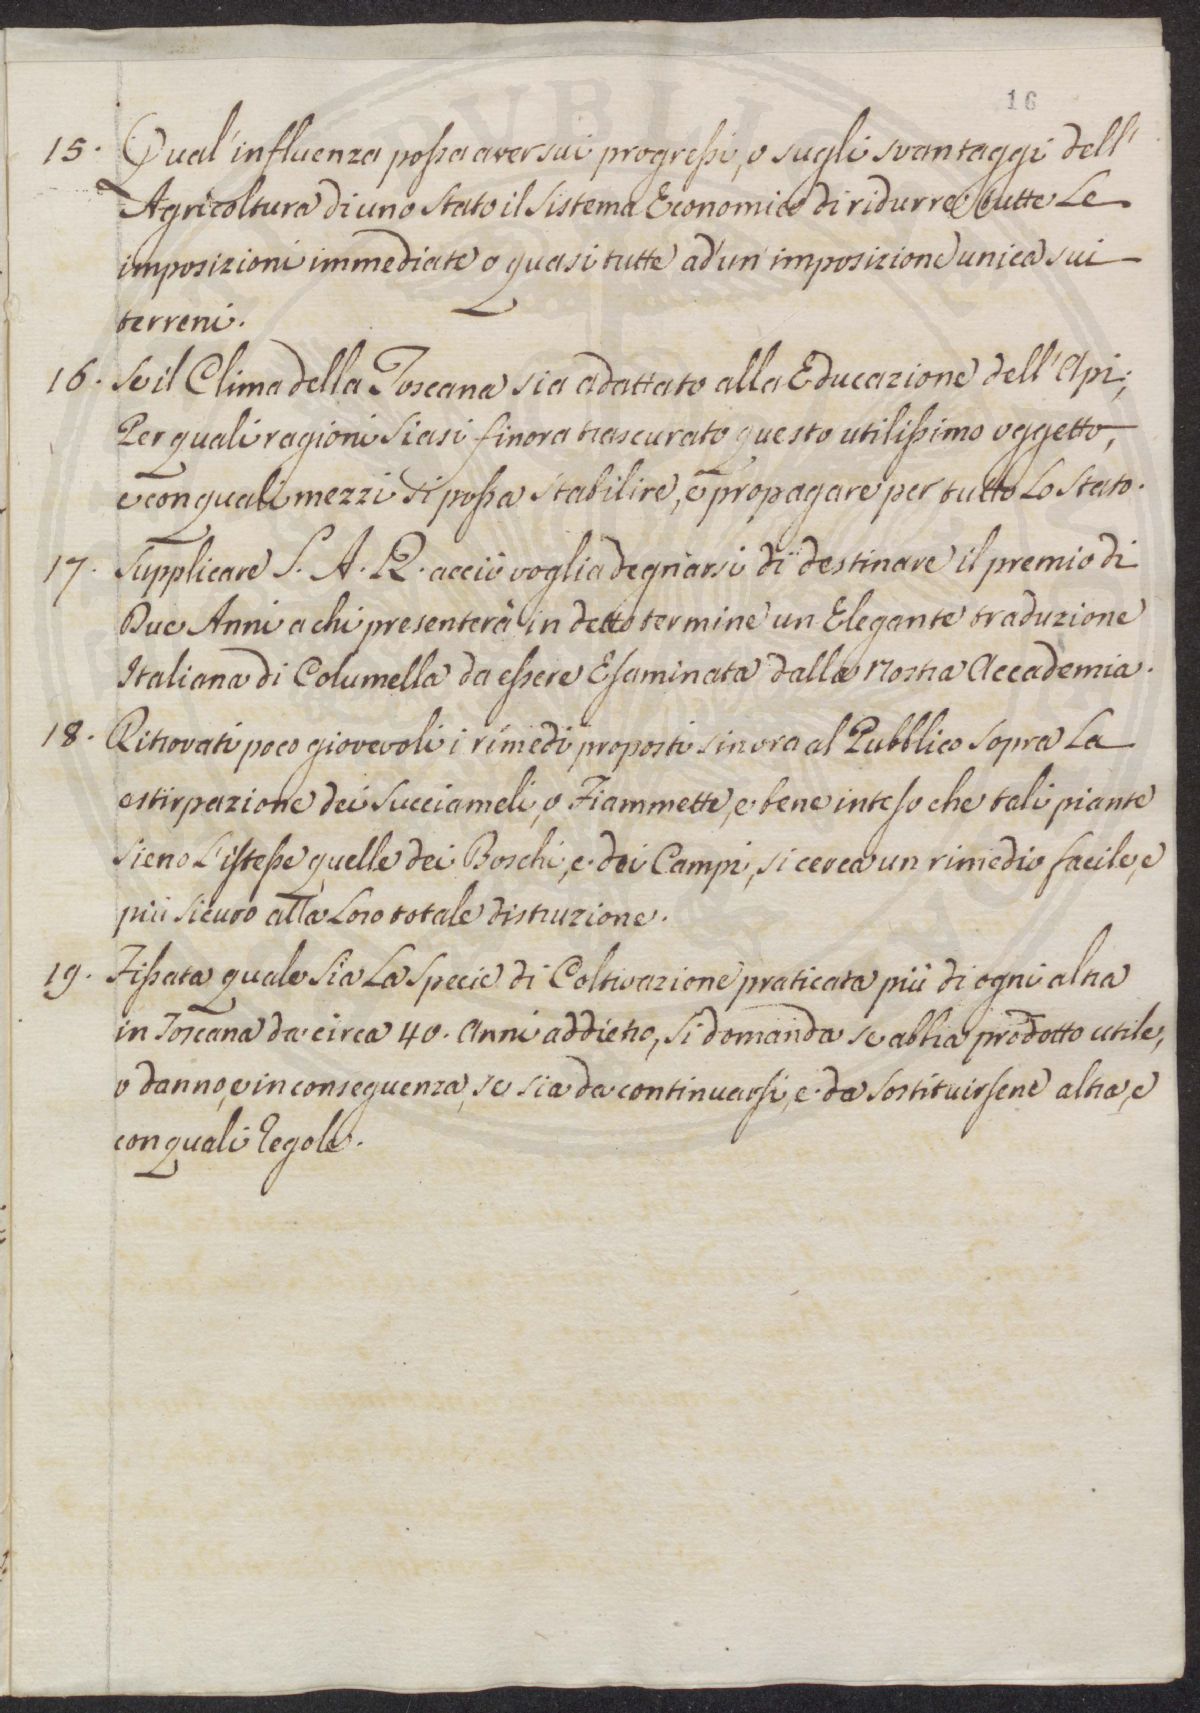 16
15. Qual'influenza possa aver sui progressi, o sugli svantaggi dell'
Agricoltura di uno Stato il Sistema Economico di ridurre tutte Le
imposizioni immediate o quasi tutte ad'un'imposizione unica sui
terreni.
16. Se il Clima della Toscana sia adattato alla Educazione dell'Api;
Per quali ragioni siasi finora trascurato questo utilissimo oggetto,
e con quali mezzi si possa stabilire, e propagare per tutto Lo Stato.
17. Supplicare S. A. R. acciò voglia degnarsi di destinare il premio di
Due Anni a chi presenterà in detto termine un Elegante traduzione
Italiana di Columella da essere Esaminata dalla Nostra Accademia.
18. Ritrovati poco giovevoli i rimedi proposti sinora al Pubblico sopra La
estirpazione dei Succiameli, o Fiammette, e bene inteso che tali piante
sieno L'istesse quelle dei Boschi, e dei Campi, si cerca un rimedio facile, e
più sicuro alla Loro totale distruzione.
19. Fissata quale sia La Specie di Coltivazione praticata più di ogni altra
in Toscana da circa 40. Anni addietro, si domanda se abbia prodotto utile,
o danno, e in conseguenza, se sia da continuarsi, e da sostituirsene altra, e
con quali Regole.